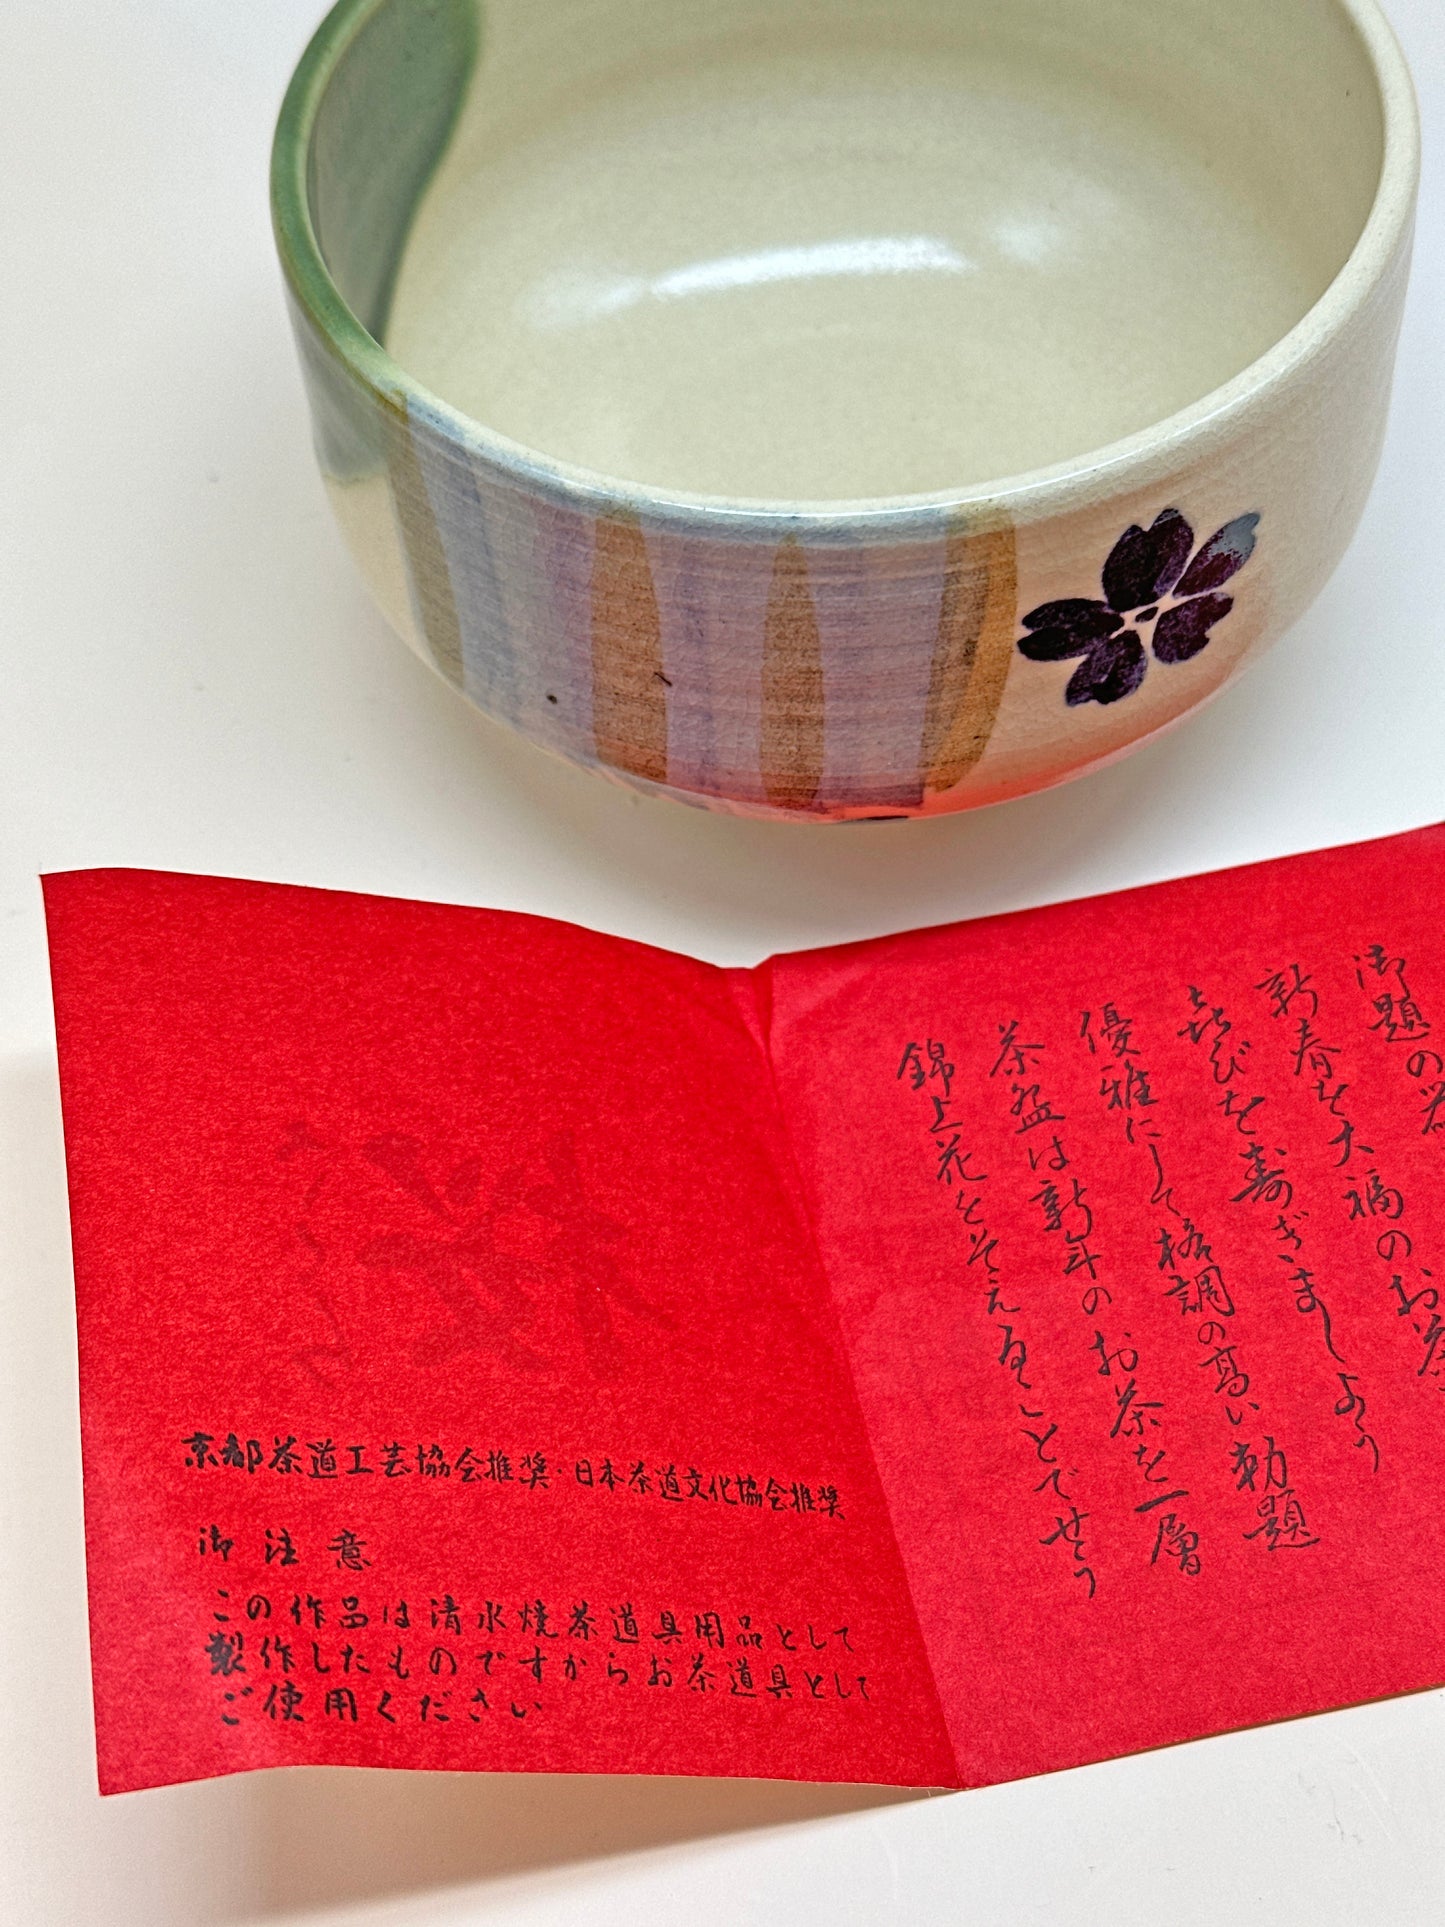 御題の
新春を大福のお茶
㐂びを寿ぎましょう
優雅にして格調の高い勅題
茶盌は新年のお茶を一層
錦上花をそえることでせう
京都茶道工芸協会推奨・日本茶道文化協会推奨
御注意
この作品は清水焼茶道具用品として
製作したものですからお茶道具として
ご使用ください